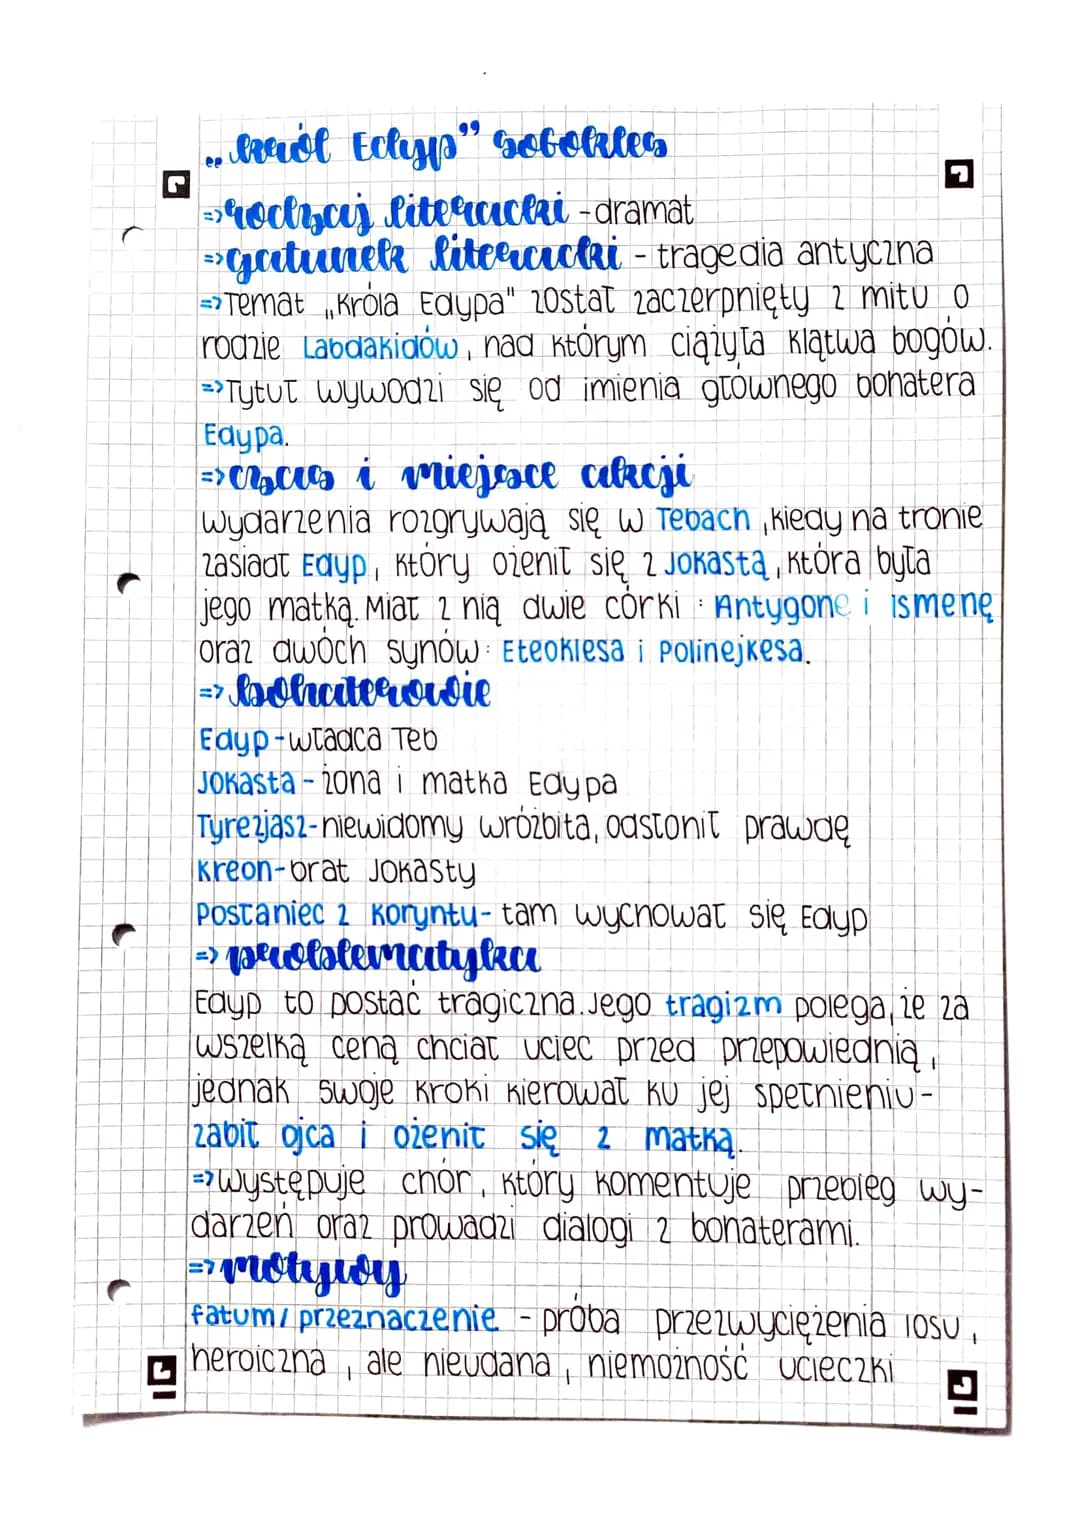 „Król Edyp” Sofokles
=> rodzaj literacki - dramat
=> gatunek literacki - tragedia antyczna
=> Temat „Króla Edypa" został zaczerpnięty z mitu o
rodzie Labdakidów, nad którym ciążyła klątwa bogów.
=> Tytuł wywodzi się od imienia głównego bohatera
Edypa.
=> czas i miejsce akcji
wydarzenia rozgrywają się w Tebach, kiedy na tronie
zasiadł Edyp, który ożenił się z Jokastą, która była
jego matką. Miał z nią dwie córki: Antygonę i ismenę
oraz dwóch synów: Eteoklesa i Polinejkesa.
=> bohaterowie
Edyp - władca Teb
Jokasta - żona i matka Edypa
Tyrezjasz - niewidomy wróżbita, odsłonił prawdę
Kreon - brat Jokasty
Posłaniec z Koryntu - tam wychował się Edyp
=> problematyka
Edyp to postać tragiczna. Jego tragizm polega, że za
wszelką ceną chciał uciec przed przepowiednią,
jednak swoje kroki kierował ku jej spełnieniu -
zabił ojca i ożenił się z matką.
=> Występuje chór, który komentuje przebieg wy-
darzeń oraz prowadzi dialogi z bohaterami.
=> motywy
fatum / przeznaczenie - próba przezwyciężenia losu,
heroiczna, ale nieudana, niemożność ucieczki